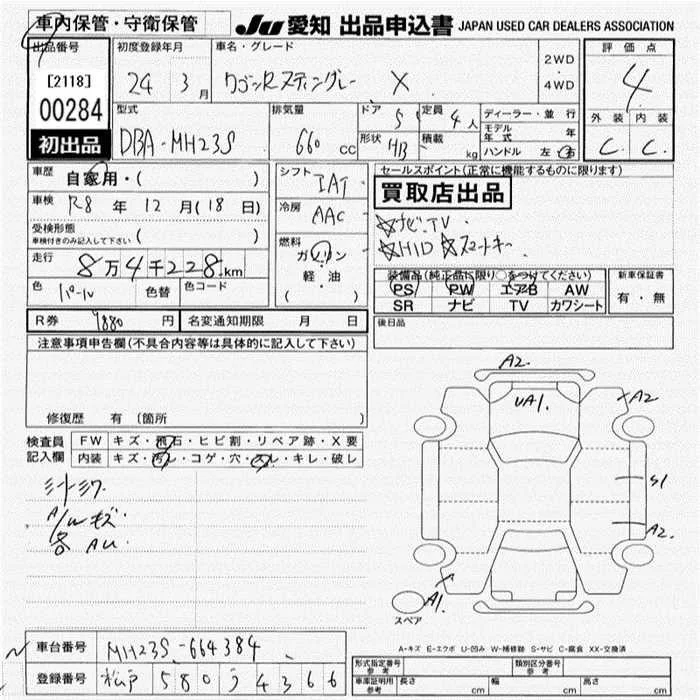 車内保管・守衛保管
JU 愛知 出品申込書 JAPAN USED CAR DEALERS ASSOCIATION
出品番号
[2118]
00284
初出品
初度登録年月
24 3月
車名・グレード
ワゴンRスティングレー X
2WD
4WD
評価点
4
外装 内装
C C
型式
DBA-MH23S
排気量
660 cc
ドア 5
形状 HB
定員 4人
積載 kg
ディーラー・並行
モデル年式 年
ハンドル 左・右
車歴 自家用・( )
車検 R8年12月(18日)
受検形態
車検付きのみ記入して下さい ( )
走行
8万4千228km
色 パール 色替 色コード
シフト
IAT
冷房
AAC
燃料
ガソリン
軽・油
( )
セールスポイント(正常に機能するものに限ります)
買取店出品
☆ナビ.TV
☆HID ☆スマートキー
装備品(純正品に限り○をつけてください)
PS PW エアB AW
SR ナビ TV カワシート
新車保証書
有・無
R券 9880円
名変通知期限 月 日
後日品
注意事項申告欄(不具合内容等は具体的に記入して下さい)
修復歴 有 (箇所 )
検査員記入欄
FW キズ・飛石・ヒビ割・リペア跡・X要
内装 キズ・汚レ・コゲ・穴・スレ・キレ・破レ
A/Wキズ
各AU
A2
UA1
A2
S1
A2
A1
スペア
A-キズ E-エクボ U-凹み W-補修跡 S-サビ C-腐食 XX-交換済
車台番号 MH23S-664384
登録番号 松戸 580 う 4366
形式指定番号 参考
類別区分番号 参考
車庫証明用 参考 長さ cm 幅 cm 高さ cm